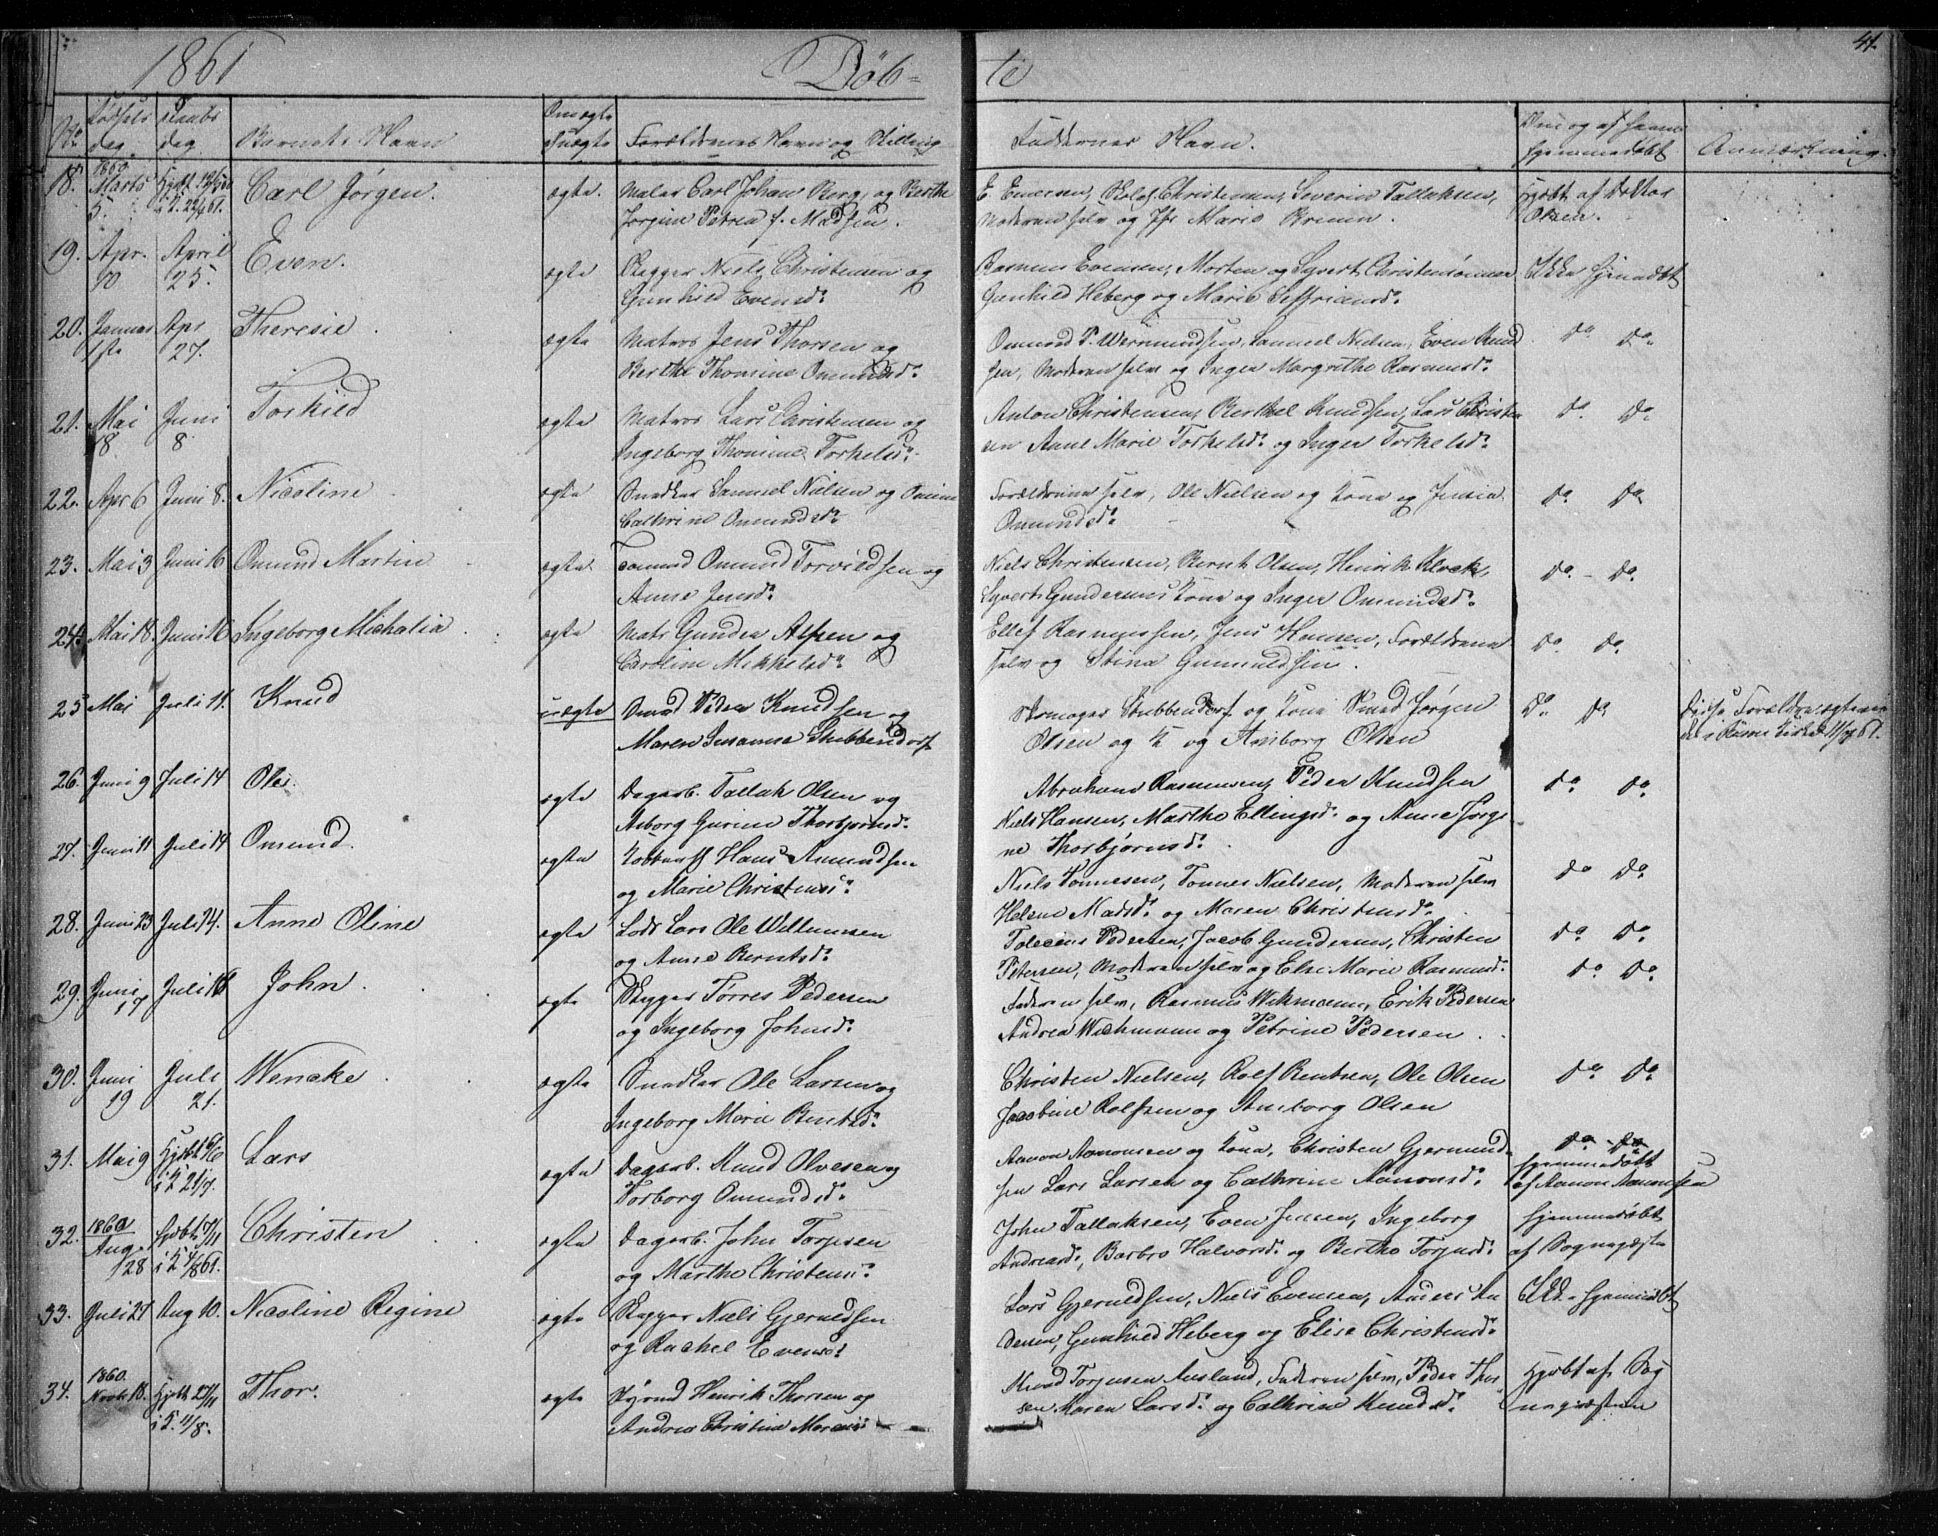 1861 Døb- te 41.
No Fødsels dag Daabs dag Barnets Navn Om ægte Uægte Forældrenes Navn og Stilling Faddernes Navn. Om og af hvem hjemmedøbt Anmærkning.
18. 1860 Marts 5. Carl Jørgen. ægte. Maler Carl Johan Borg og Berthe E. Evensen, Christensen, Severin Tallaksen, Hjdbt af Doktor
Jørgine Petrea f. Madsen. Moderen selv og Marie Olsen.
19. Apr. 10 April 25. Even. ægte Skipper Niels Christensen og Rasmus Evensen, Morten og Syvert Christensønner Ikke hjemdbt
Gunhild Evensd. Gunhild Heberg og Marie
20. Januar 1ste Apr 27. Theresie. ægte Matros Jens Thorsen og Omund T. Wermundsen, Samuel Nielsen, Even Knud Do Do
Berthe Thomine Omundsd. sen, Moderen selv og Inger Margrethe Rasmusd.
21. Mai 18. Juni 8. Torkild ægte Matros Lars Christensen og Anton Christensen, Berthel Knudsen, Lars Christen Do Do
Ingeborg Thomine Torkelsd. sen Anne Marie Torkelsd. og Inger Torkelsd.
22. Apr 6 Juni 8. Nicoline ægte Snedker Samuel Nielsen og Forældrene selv, Ole Nielsen og Kone og Do Do
Cathrine Omundsd. Omundsd.
23. Mai 3 Juni 16 Omund Martin ægte Omund Torvildsen og Niels Christensen, Bernt Olsen, Henrik Klock, Do Do
Anne Jensd. Syvert Gundersens Kone og Inger Omundsd.
24. Mai 18. Juni 16 Ingeborg Michalia ægte Matr Gunder Alfsen og Ellef Rasmussen, Jens Hansen, Forældrene Do Do
Caroline Mikkelsd. selv og Stina Gunnuldsen.
25 Mai Juli 11. Knud uægte Smed Peder Knudsen og Skomager Stubbendorf og Kone Smed Jørgen Do Do Disse Forældre
Maren Susanne Stubbendorf Olsen og K og Aasborg Olsen
26. Juni 9 Juli 14 Ole. ægte Dagarb. Tallak Olsen og Abraham Rasmussen, Peder Knudsen Do Do
Asborg Gurine Thorbjørnsd. Niels Hansen, Marthe Ellingsd. og Anne Jørgi
ne Thorbjørnsd.
27. Juni 11 Juli 14 Omund. ægte Hans Amundsen Niels Tønnesen, Tønnes Nielsen, Moderen selv Do Do
og Marie Christensd. Helene Madsd. og Maren Christensd.
28. Juni 23 Juli 14. Anne Oline ægte Lods Lars Ole Willumsen Pedersen, Jacob Gundersen, Christen Do Do
og Anne Berntsd. Petersen, Moderen selv og Else Marie Rasmusd.
29. Juni 17 Juli John. ægte Skipper Tørres Pedersen Faderen selv, Rasmus Wichmann, Erik Pedersen Do Do
og Ingeborg Johnsd. Andrea Wichmann og Petrine Pedersen.
30. Juni 19 Juli 21. Wencke. ægte Snedker Ole Larsen og Christen Nielsen, Rolf Berntsen, Ole Olsen Do Do
Ingeborg Marie Berntsd. Jacobine Rolfsen og Aasborg Olsen
31. Mai 9 i K 21/7. Lars ægte Dagarb. Knud Olvesen og Aanon Aanonsen og Kone, Christen Gjermund- Do Do hjemmedøbt
Torborg Omundsd. sen Lars Larsen og Cathrine Aanonsd. af Aanon Aanonsen
32. 1860 Aug. 28 i K 4/8 61. Christen ægte Dagarb. John Torjesen John Tallaksen, Even Jensen, Ingeborg hjemmedøbt
og Marthe Christensd. Andreasd., Barbro Halvorsd. og Berthe Torjusd. af Sognepræst
33. Juli 21 Aug 10. Nicoline Regine ægte Skipper Niels Gjeruldsen Lars Gjeruldsen, Niels Evensen, Anders An Ikke hjemmedbt
og Rachel Evensd. dersen, Gunhild Heberg og Elise Christensd.
34. 1860. Novbr 18. Hjdbt 27/11 i K. 11/8. Thor. ægte Henrik Thorsen og Knud Torjusen Ausland, Faderen selv, Peder Thor Hjdbt af Sog
Andrea Christine sen Maren Larsd. og Cathrine Knudsd. nepræsten